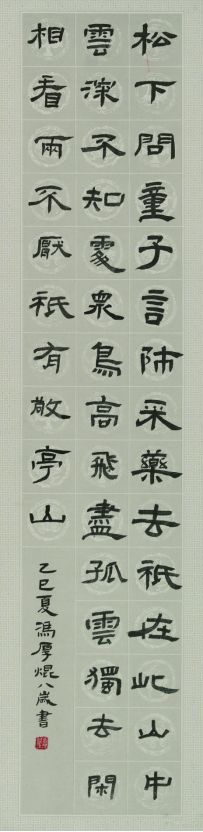 松下問童子言師采藥去祇在此山中
雲深不知處衆鳥高飛盡孤雲獨去閑
相看兩不厭祇有敬亭山
乙巳夏馮厚焜八歲書